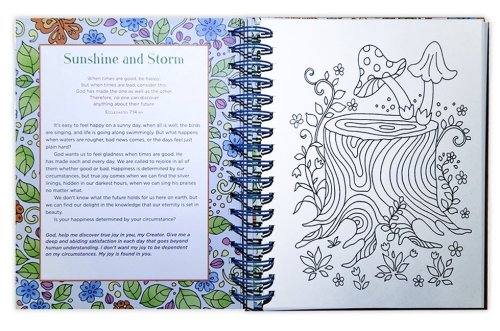 Sunshine and Storm
When times are good, be happy;
but when times are bad, consider this:
God has made the one as well as the other.
Therefore, no one can discover
anything about their future.
ECCLESIASTES 7:14 NIV
It's easy to feel happy on a sunny day, when all is well, the birds
are singing, and life is going along swimmingly. But what happens
when waters are rougher, bad news comes, or the days feel just
plain hard?
God wants us to feel gladness when times are good. He
has made each and every day. We are called to rejoice in all of
them whether good or bad. Happiness is determined by our
circumstances, but true joy comes when we can find the silver
linings, hidden in our darkest hours, when we can sing his praises
no matter what.
We don't know what the future holds for us here on earth, but
we can find our delight in the knowledge that our eternity is set in
beauty.
Is your happiness determined by your circumstance?
God, help me discover true joy in you, my Creator. Give me a
deep and abiding satisfaction in each day that goes beyond
human understanding. I don't want my joy to be dependent
on my circumstances. My joy is found in you.